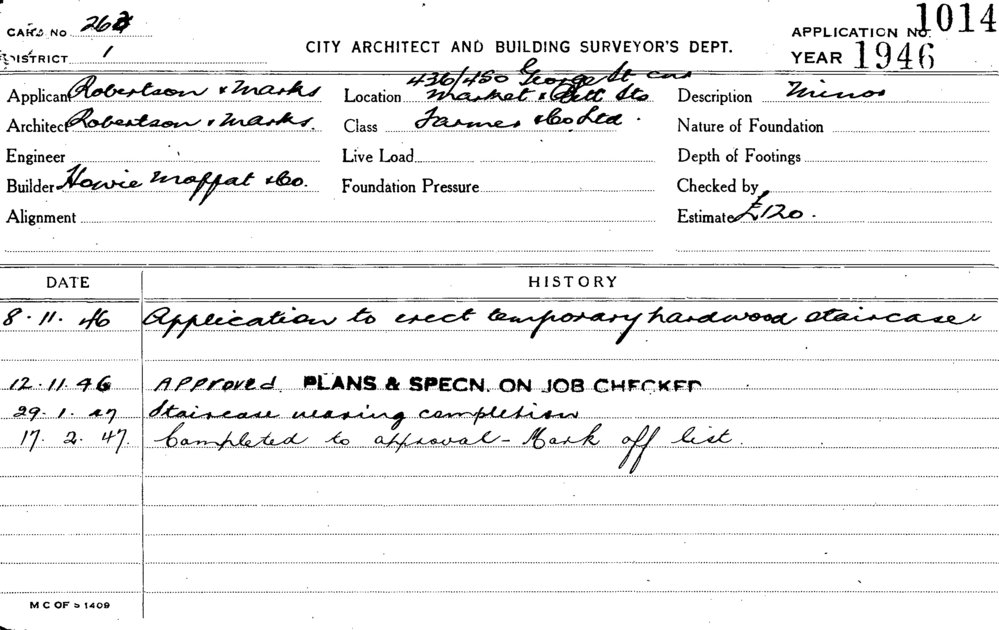 CARD No 262
APPLICATION No. 1014
DISTRICT 1
CITY ARCHITECT AND BUILDING SURVEYOR'S DEPT.
YEAR 1946
Applicant Robertson & Marks
Location 436/450 George St cnr
Market & Pitt Sts
Description Minor
Architect Robertson & Marks.
Class Farmer & Co Ltd.
Nature of Foundation
Engineer
Live Load
Depth of Footings
Builder Howie Moffat & Co.
Foundation Pressure
Checked by
Alignment
Estimate £120.
DATE HISTORY
8.11.46 Application to erect temporary hardwood staircase
12.11.46 Approved PLANS & SPECN. ON JOB CHECKED
29.1.47 Staircase nearing completion
17.2.47. Completed to approval - Mark off list.
M C OF S 1409